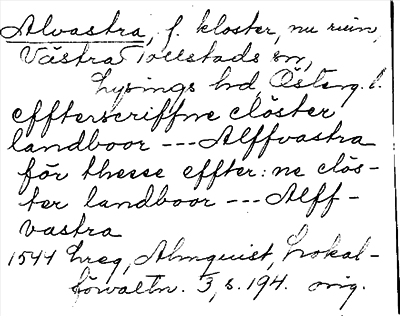 Alvastra, f. kloster, nu ruin,
Västra Tollstads sn,
Lysings hd, Österg. l.
effterscriffne clöster
landboor --- Alffvastra
för thesse effter:ne clös-
ter landboor --- Alff-
vastra
1544 Lreg, Almquist, Lokal-
förvaltn. 3, s. 194. orig.